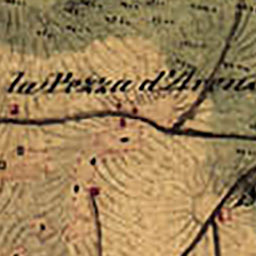 la Pezza d'Aren